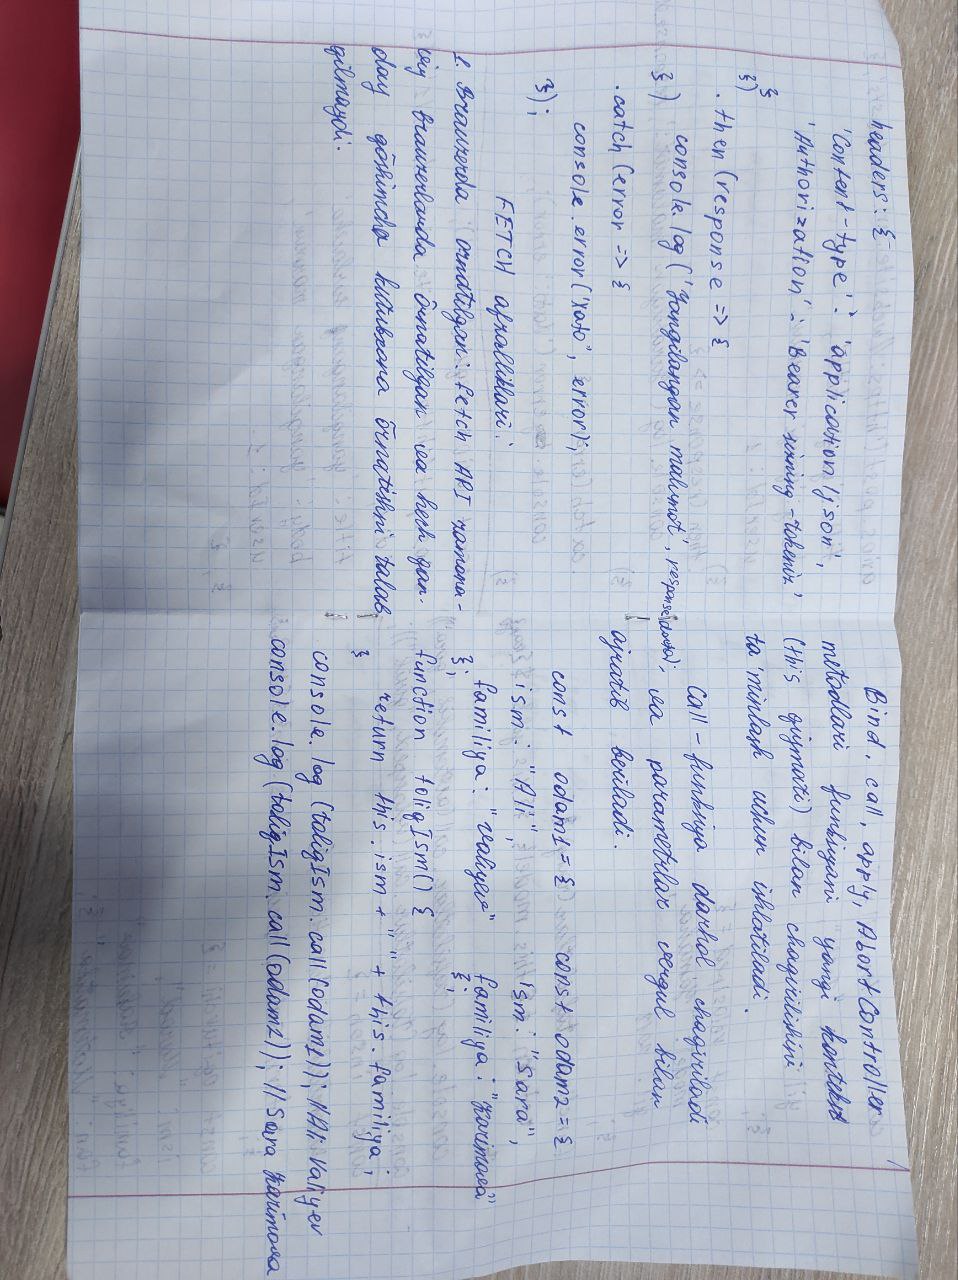 headers: {
'Content-type': 'application/json',
'Authorization': 'Bearer sizning-tokeniz'
}
})
.then (response => {
console.log ('Yangilangan malumot', response.data);
})
.catch (error => {
console.error ('Xato', error);
});
FETCH afzalliklari:
1. Brauzerda ornatilgan: fetch API zamona-
viy brauzerlarda o'rnatilgan va hech qan-
day qo'shimcha kutubxona o'rnatishni talab
qilmaydi.
Bind, call, apply, AbortController
metodlari funksiyani yangi kontekst
(this qiymati) bilan chaqirilishini
ta'minlash uchun ishlatiladi.
Call - funksiya darhol chaqiriladi
va parametrlar vergul bilan
ajratib beriladi.
const odam1 = { const odam2 = {
ism: "Ali", ism: "Sara",
familiya: "Valiyev" familiya: "Karimova"
}; };
function toliqIsm() {
return this.ism + " " + this.familiya;
}
console.log (toliqIsm.call (odam1)); // Ali Valiyev
console.log (toliqIsm.call (odam2)); // Sara Karimova